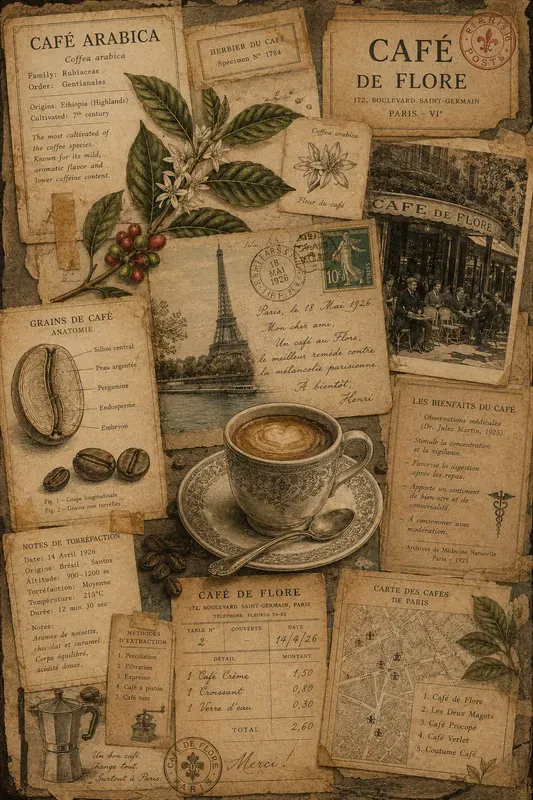 CAFÉ ARABICA
Coffea arabica
Family: Rubiaceae
Order: Gentianales
Origins: Ethiopia (Highlands)
Cultivated: 7th century
The most cultivated of
the coffee species.
Known for its mild,
aromatic flavor and
lower caffeine content.
HERBIER DU CAFÉ
Specimen N° 1784
CAFÉ
DE FLORE
172, BOULEVARD SAINT-GERMAIN
PARIS – VIᵉ
Coffea arabica
Fleur du café
CAFE DE FLORE
18
MAI
1926
10
Paris, le 18 Mai 1926.
Mon cher ami,
Un café au Flore,
le meilleur remède contre
la mélancolie parisienne.
À bientôt,
Henri
GRAINS DE CAFÉ
ANATOMIE
Sillon central
Peau argentée
Pergamine
Endosperme
Embryon
Fig. 1 - Coupe longitudinale
Fig. 2 - Grains non torréfiés
LES BIENFAITS DU CAFÉ
Observations médicales
(Dr. Jules Martin, 1925)
Stimule la concentration
et la vigilance.
Favorise la digestion
après les repas.
Apporte un sentiment
de bien-être et de
convivialité.
À consommer avec
modération.
Archives de Médecine Naturelle
Paris - 1925
NOTES DE TORRÉFACTION
Date: 14 Avril 1926
Origine: Brésil - Santos
Altitude: 900-1200 m
Torréfaction: Moyenne
Température: 215°C
Durée: 12 min 30 sec
Notes:
Arômes de noisette,
chocolat et caramel.
Corps équilibré,
acidité douce.
METHODES
D'EXTRACTION
1. Percolation
2. Filtration
3. Expresso
4. Café à piston
5. Café turc
Un bon café
change tout.
Surtout à Paris.
CAFÉ DE FLORE
172, BOULEVARD SAINT-GERMAIN, PARIS
TABLE N° COUVERTS DATE
2 14/4/26
DÉTAIL MONTANT
1 Café Crème 1,50
1 Croissant 0,80
1 Verre d'eau 0,30
TOTAL 2,60
Merci !
CAFÉ DE FLORE
PARIS
CARTE DES CAFÉS
DE PARIS
1. Café de Flore
2. Les Deux Magots
3. Café Procope
4. Café Verlet
5. Coutume Café